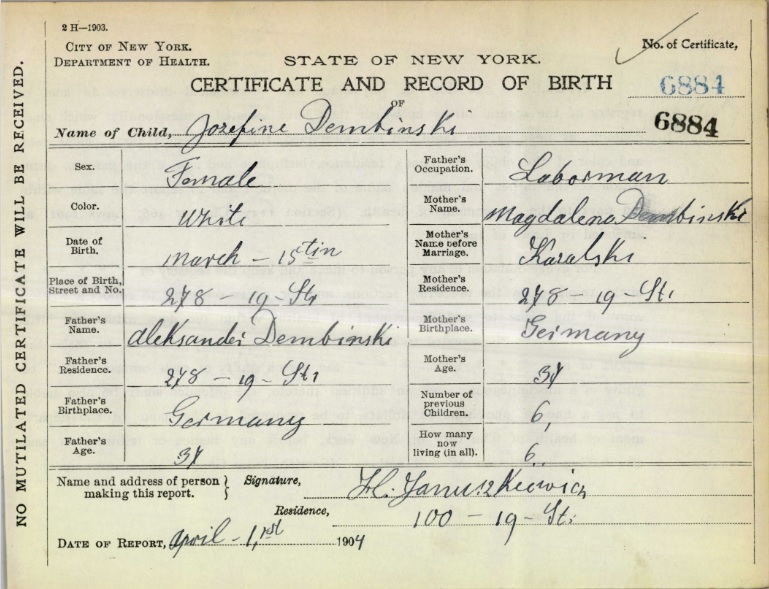 2 H—1903.
CITY OF NEW YORK.
No. of Certificate,
DEPARTMENT OF HEALTH.
STATE OF NEW YORK.
CERTIFICATE AND RECORD OF BIRTH
6884
OF
Name of Child, Jozefine Dembinski
6884
Sex. Female
Color. White
Date of Birth. March - 15
Place of Birth, Street and No. 278 - 19 - Str
Father's Name. Aleksander Dembinski
Father's Residence. 278 - 19 - Str
Father's Birthplace. Germany
Father's Age. 37
Father's Occupation. Laborman
Mother's Name. Magdalena Dembinski
Mother's Name before Marriage.
Mother's Residence. 278 - 19 - Str
Mother's Birthplace. Germany
Mother's Age. 37
Number of previous Children. 6
How many now living (in all). 6
Name and address of person making this report.
Signature, Januszkiewicz
Residence, 100 - 19 - St.
DATE OF REPORT, April - 1st 1904
NO MUTILATED CERTIFICATE WILL BE RECEIVED.